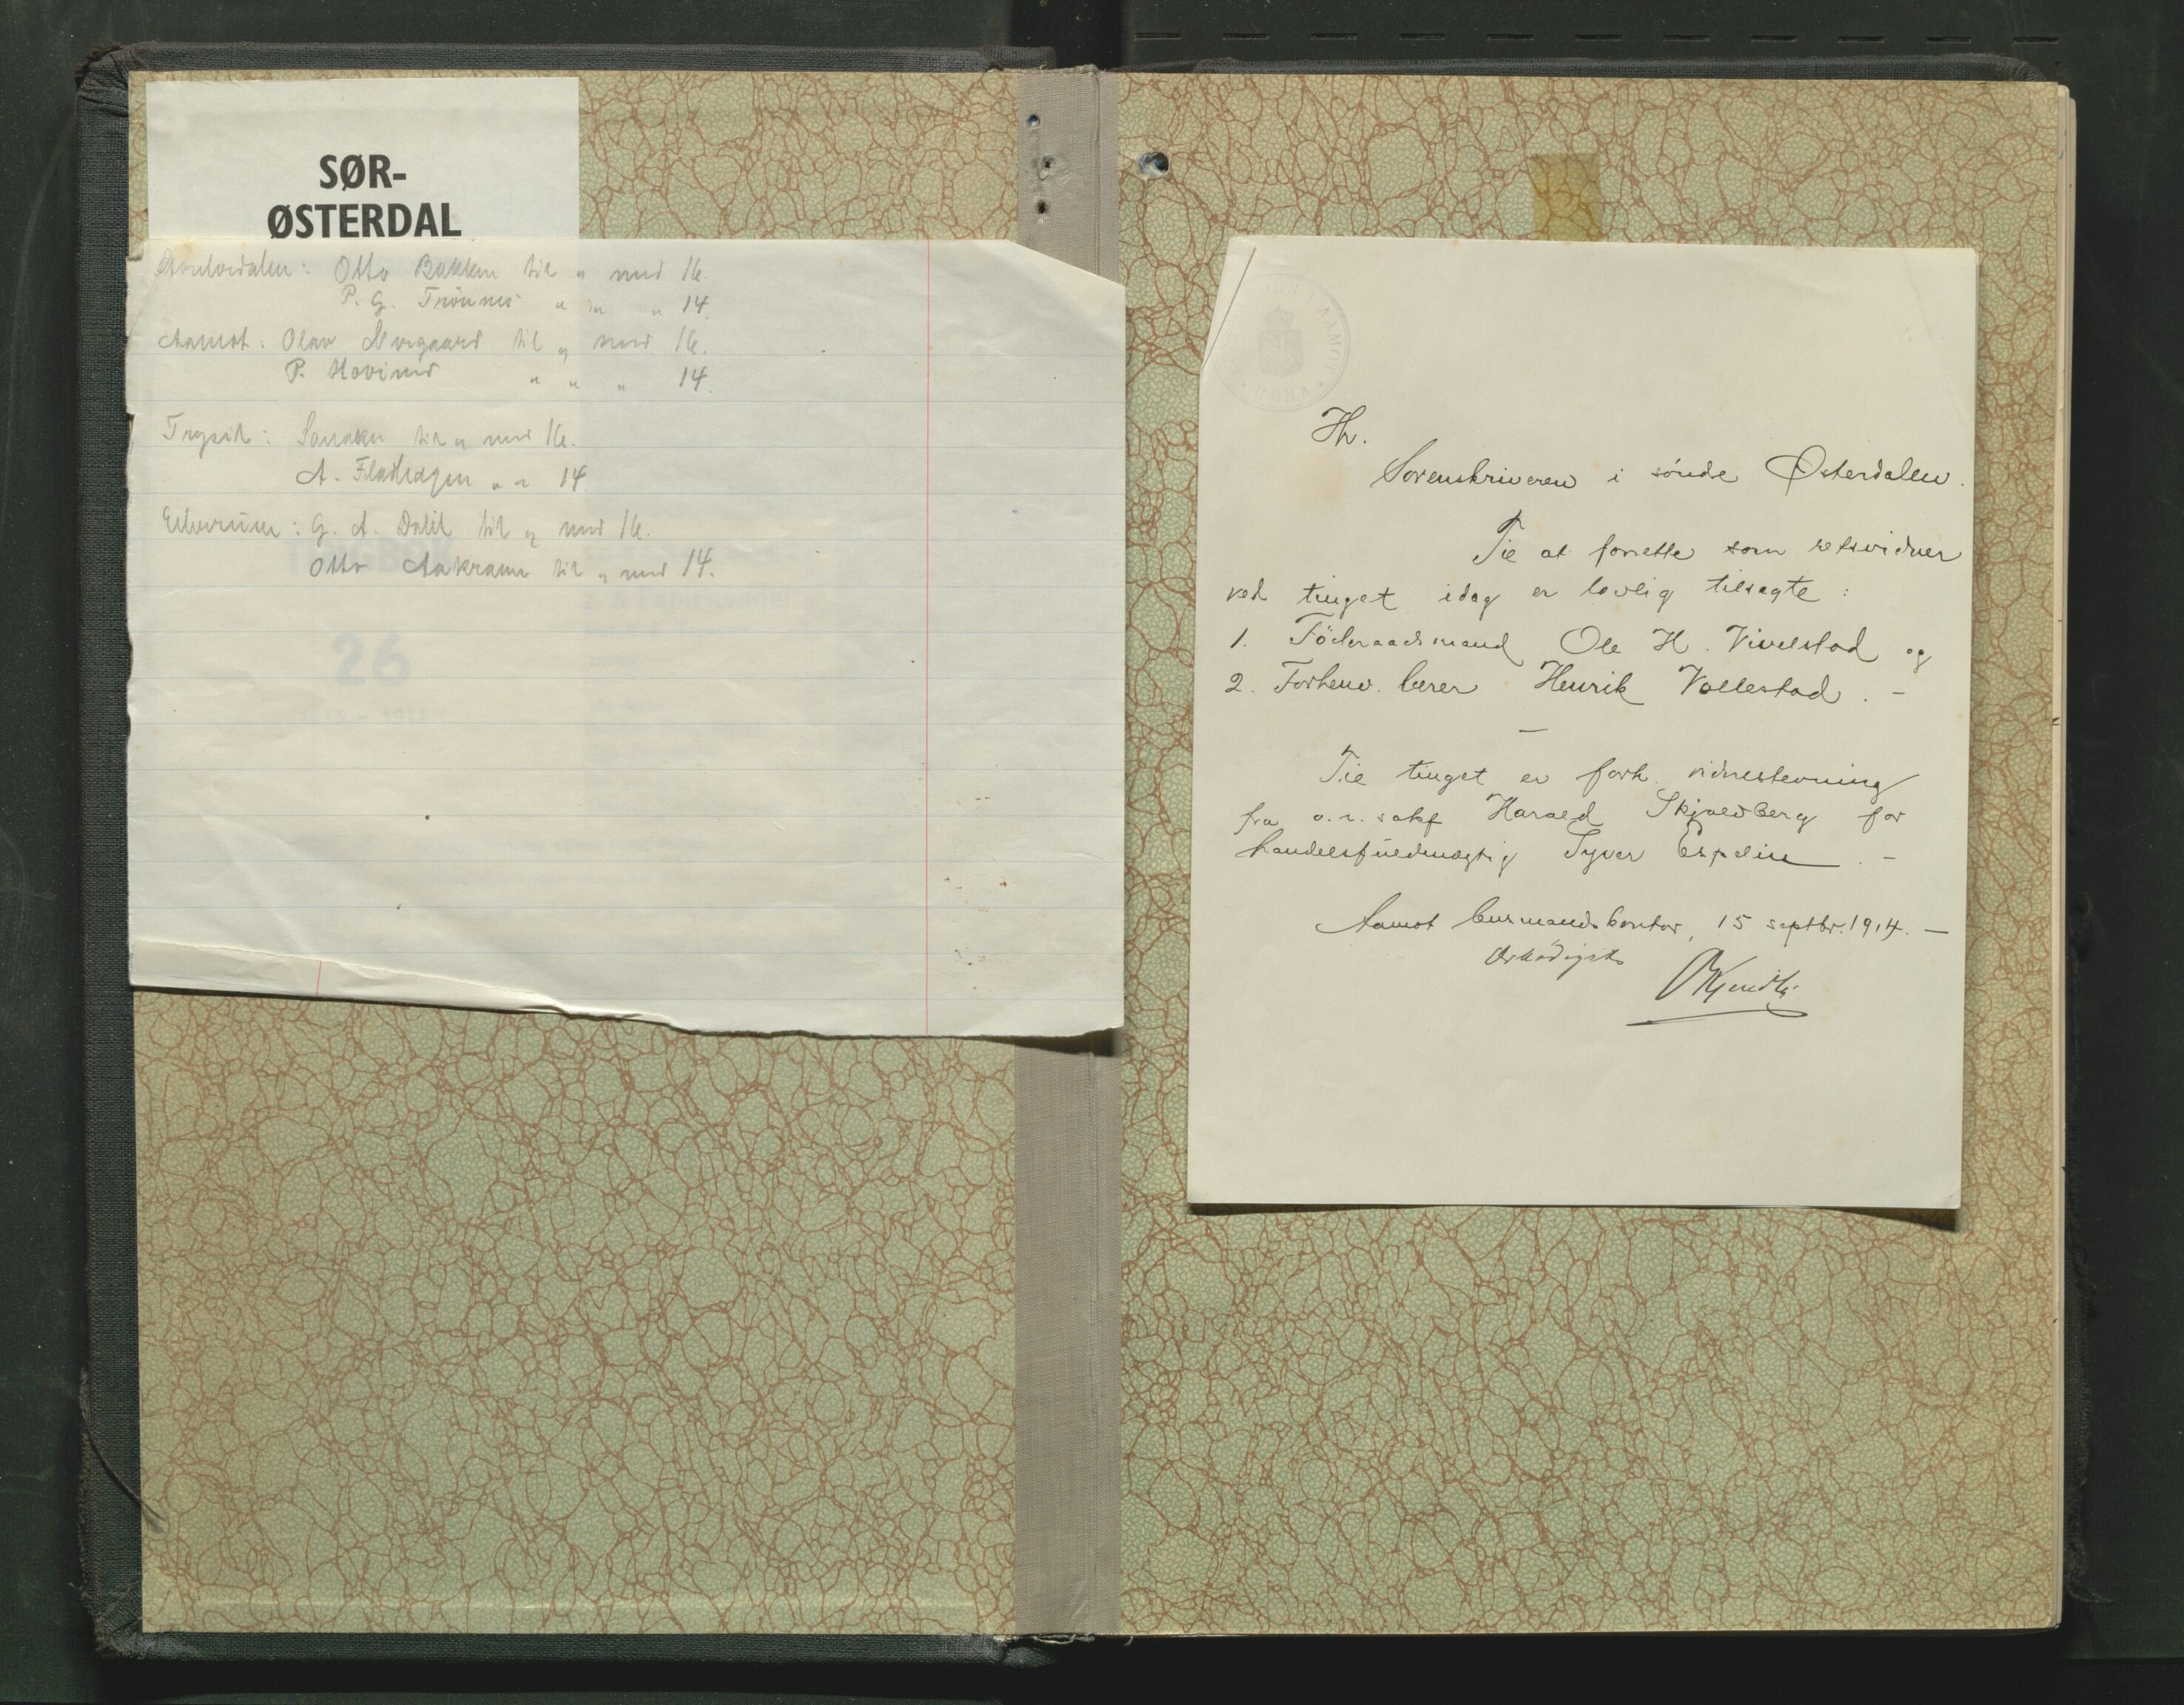 SØR-
ØSTERDAL
Storelvdalen: Otto Bakken til og med 16.
P. G. Trønnes " " " 14.
Aamot: Olav Norgaard til og med 16.
P. Hovind " " " 14.
Trysil: til og med 16.
A. Flathagen " " 14
Elverum: G. A. Dahl til og med 16.
Otto Aakrann til og med 14.
26
Hr.
Sorenskriveren i søndre Østerdalen.
Til at forrette som retsvidner
ved tinget idag er lovlig tilsagte:
1. Föderaadsmand Ole H. Vivelstad og
2. Forhenv. lærer Henrik Vollestad. -
-
Til tinget er fork. vidnestevning
fra o.r.sakf Harald Skjoldberg for
handelsfuldmægtig Syver Espelien. -
Aamot lensmandskontor, 15 septbr. 1914. -
Ærbödigst
OKjendli
AAMOT